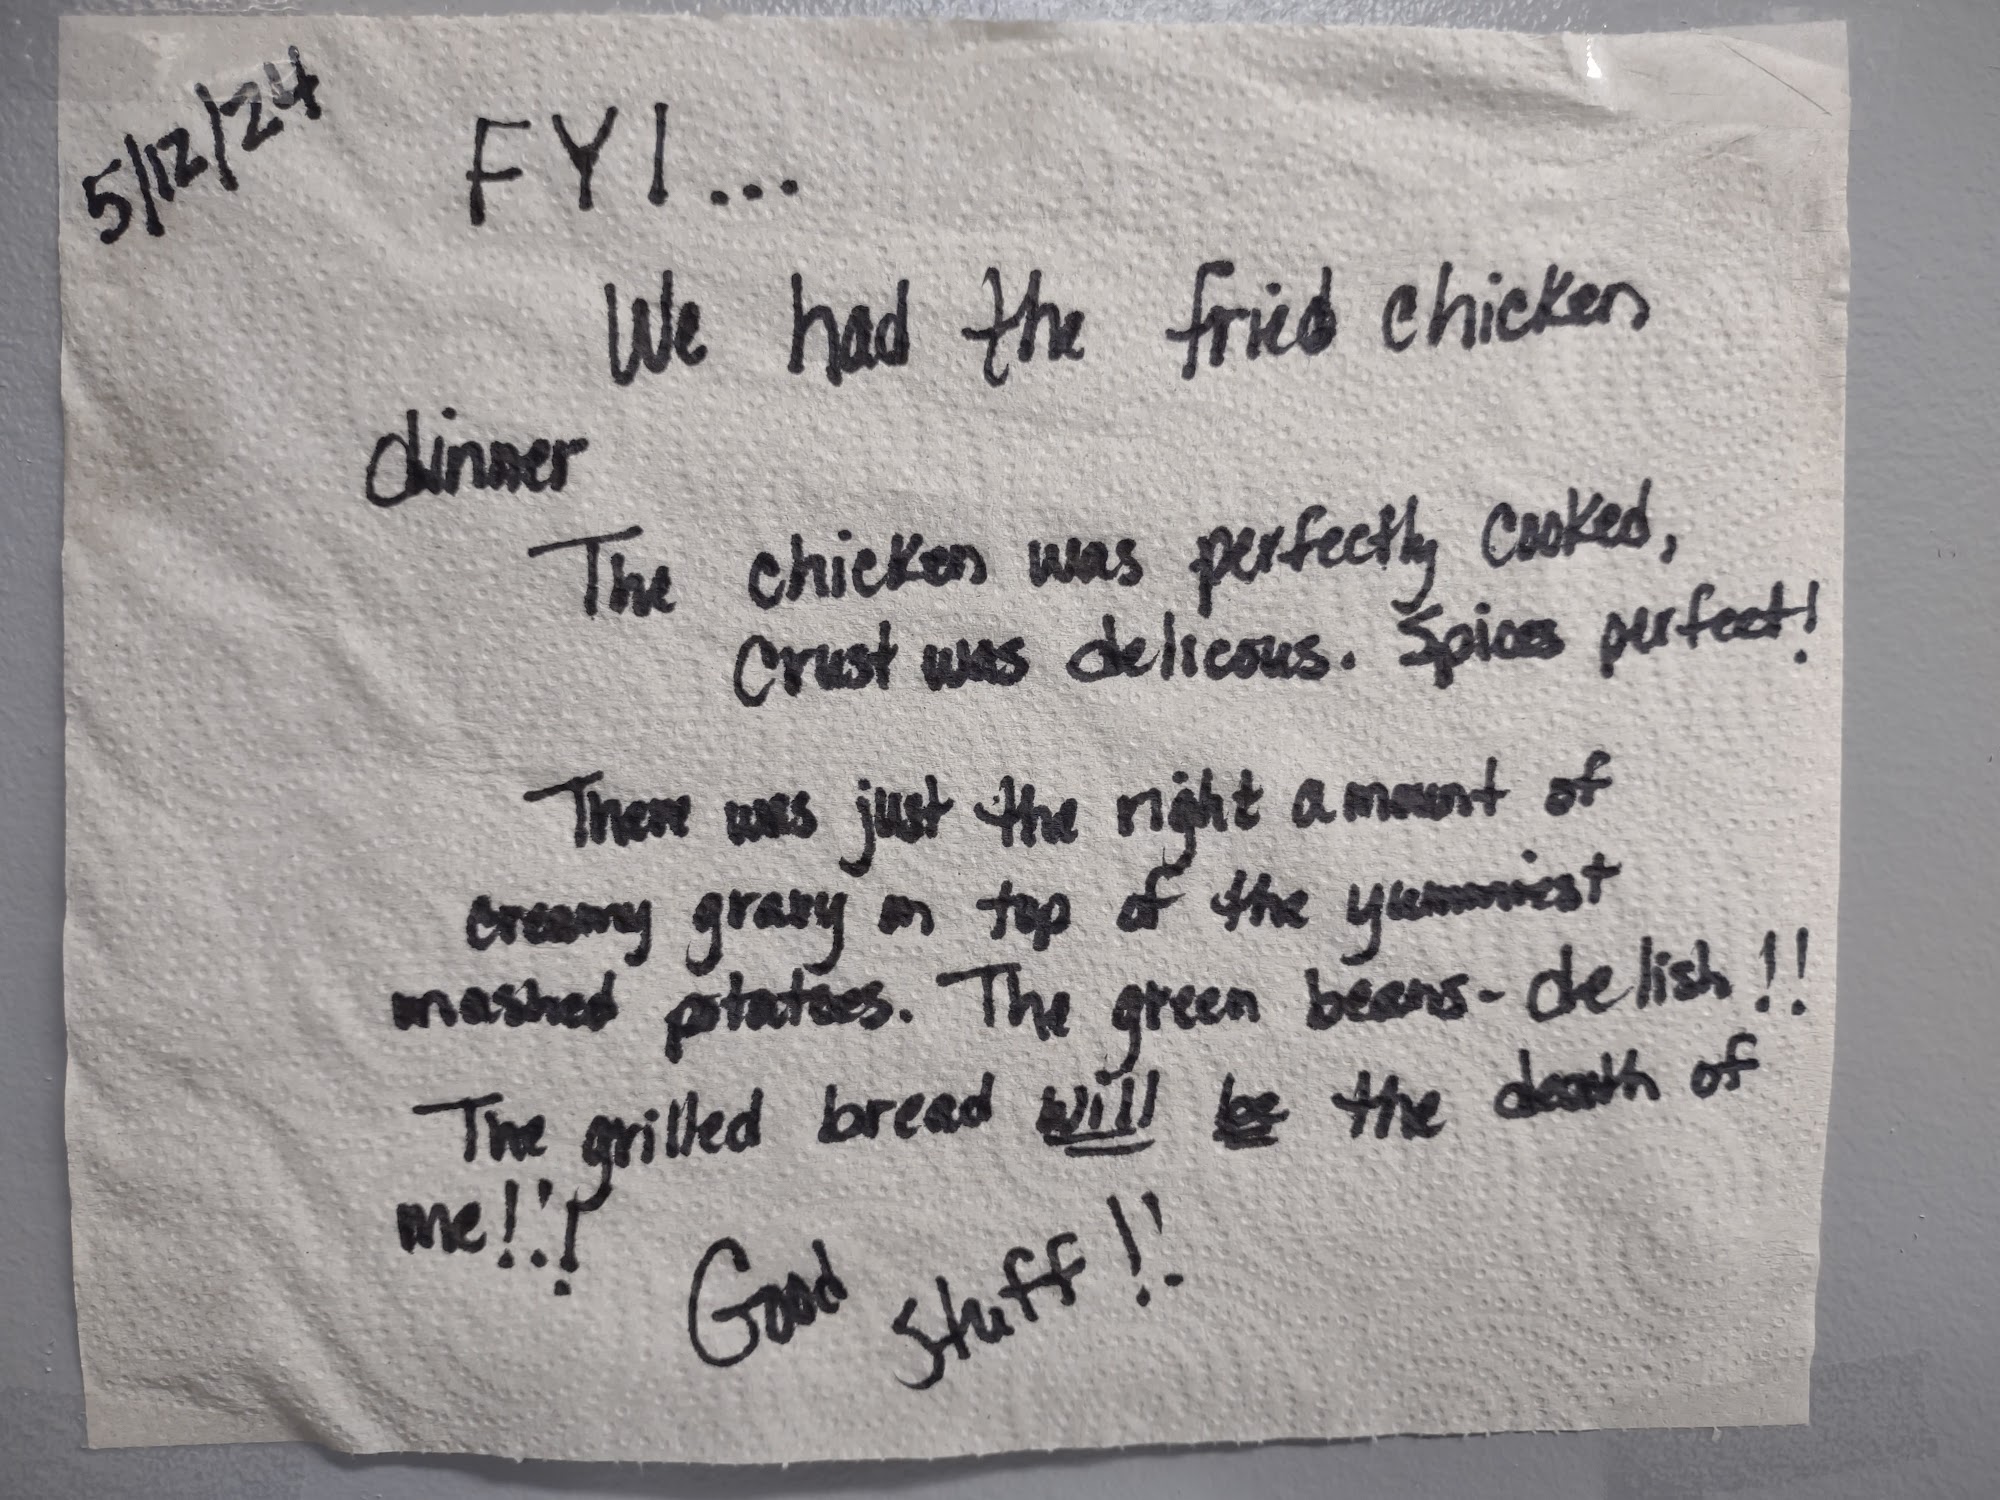 5/12/24
FYI...
We had the fried chicken
dinner
The chicken was perfectly cooked,
Crust was delicous. Spices perfect!
There was just the right amount of
creamy gravy on top of the yummiest
mashed potatoes. The green beans - delish!!
The grilled bread will be the death of
me!!!
Good stuff!!